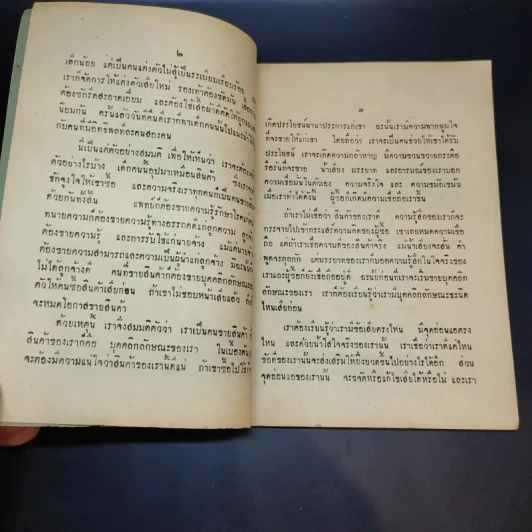 ๒
เด็กน้อย แต่เป็นคนแต่งตัวไม่สู้เป็นระเบียบเรียบร้อย
เราก็จัดการให้แต่งตัวเสียใหม่ รองเท้าต้องขัดมัน
ต้องซักรีดสะอาดเอี่ยม และต้องใช้เสื้อผ้าตัดให้ถูก
นิยมกัน ครั้นแล้ววันดีคืนดีเราก็พาเด็กคนนั้นไปแนะนำให้
กับคนที่มีอิทธิพลทีละคนสองคน
นี่เป็นแต่ตัวอย่างสมมติ เพื่อให้เห็นว่า เราจะต้อง
ตัวอย่างไรบ้าง เด็กคนนี้อุปมาเหมือนสินค้า ซึ่งเราจะ
ชักจูงใจให้เขาซื้อ และความจริงเราทุกคนก็เป็นคนขาย
ด้วยกันทั้งสิ้น แพทย์ก็ต้องขายความรู้รักษาโรค
ทนายความก็ต้องขายความรู้ทางอรรถคดีแก่ลูกความ ลูกจ้าง
ต้องขายความรู้ และการรับใช้แก่นายจ้าง แม้แต่นายจ้าง
ต้องขายความสามารถและความเป็นผู้นำแก่ลูกค้า มิฉะนั้น
ไม่ได้ลูกจ้างดี คนที่ขายสินค้าก็ต้องขายบุคคลิกลักษณะ
ตัวให้คนซื้อสินค้าเสียก่อน ถ้าเขาไม่ชอบหน้าเสียแล้ว
จะหมดโอกาสขายสินค้า
ด้วยเหตุนี้ เราจึงสมมติตัวว่า เราเป็นคนขายสินค้า
สินค้าของเราก็คือ บุคคลิกลักษณะของเรา ในเบื้องต้น
จะต้องมีความแน่ใจว่าสินค้าของเรานั้นดีแน่ ถ้าเขาซื้อไปใช้
๓
เกิดประโยชน์นานาประการแก่เขา ฉะนั้นเรามีความพากพูมใจ
ที่จะขายให้แก่เขา โดยถือว่า เราจะเป็นคนช่วยให้เขาได้รับ
ประโยชน์ เราจะเกิดความกล้าหาญ มีความชวนขวายกระตือ
รือร้นที่จะขาย น้ำเสียง มรรยาท และอารมณ์ของเราบอก
ความเชื่อมั่นในตัวเอง ความจริงใจ และ ความขมักเขม้น
เมื่อเราทำได้ดังนี้ ผู้ซื้อก็เกิดความเชื่อถือเราขึ้น
ถ้าเราไม่เชื่อว่า สินค้าของเราดี ความรู้สึกของเราก็จะ
กระจายไปเข้ากระแสร์ความคิดของผู้ซื้อ เขาเลยหมดความเชื่อ
ถือ แต่ถ้าเราเชื่อความดีของสินค้าจริง แม้น้ำเสียงจะสั่น คำ
พูดจะกุกกัก แต่มรรยาทของเราก็บอกความรู้สึกในใจจริงของ
เราและผู้ซื้อก็ยังเชื่อถืออยู่ดี ฉะนั้นก่อนที่เราจะเริ่มขายบุคคลิก
ลักษณะของเรา เราก็ต้องเรียนรู้ว่าเรามีบุคคลิกลักษณะชะนิด
ไหนเสียก่อน
เราต้องเรียนรู้ว่าเรามีข้อเสียตรงไหน มีจุดอ่อนแอตรง
ไหน และด้วยน้ำใสใจจริงของเรานั้น เราเชื่อว่าเราดีแค่ไหน
ข้อดีของเรานั้นจะส่งเสริมให้ยิ่งยวดขึ้นไปอย่างไรได้อีก ส่วน
จุดอ่อนแอของเรานั้น จะขจัดหรือแก้ไขเสียได้หรือไม่ และเรา